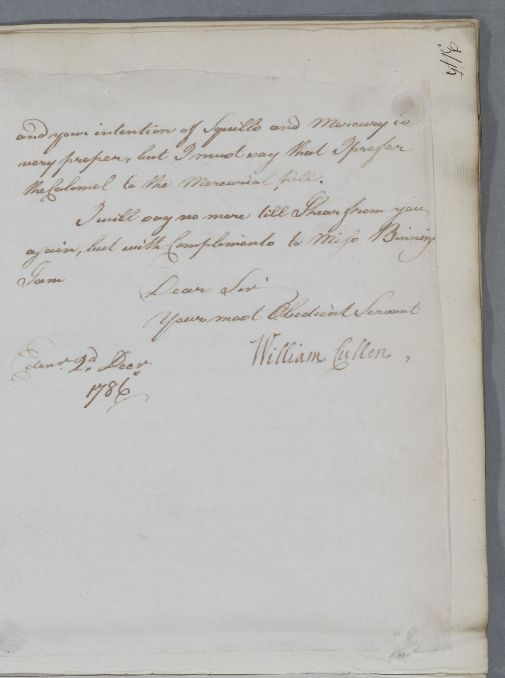 and your intention of Squills and Mercury is
very proper, but I must say that I prefer
the Calomel to the Mercurial pill.
I will say no more till I hear from you
again, but with Compliments to Miss Binning
I am
Dear Sir
Your most Obedient Servant
William Cullen,
Edinr. 2d. Decr.
1786